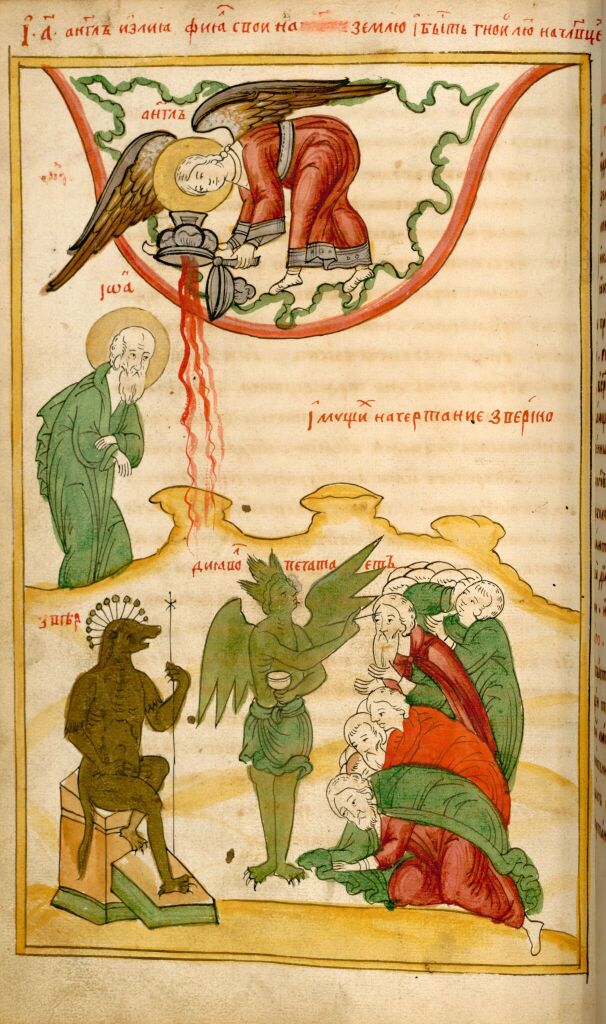 І· А҃· анг҃лъ излиꙗ фиꙗⷧ свои на землю і быⷭть гной лю на чл҃вце
анг҃лъ
Іѡ҃а
Імꙋщиⷯ начертание зверіно
диꙗвоⷧ печатаетъ
звѣр